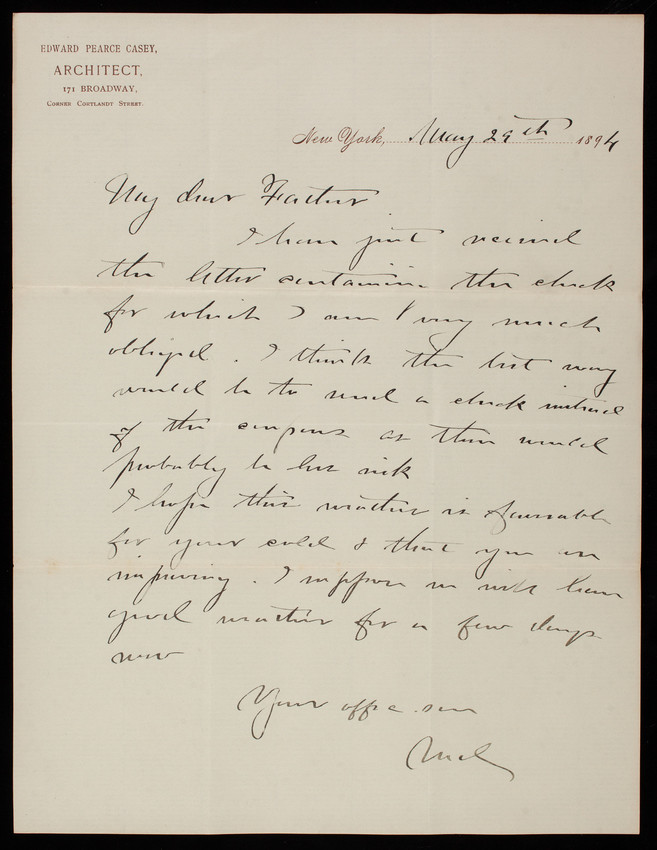 EDWARD PEARCE CASEY,
ARCHITECT,
171 BROADWAY,
CORNER CORTLANDT STREET.
New York, May 29th 1894
My dear Father
I have just received
the letter containing the check
for which I am very much
obliged. I think the best way
would be to send a check instead
of the coupons as there would
probably be less risk
I hope this weather is favorable
for your cold & that you are
improving. I suppose we will have
good weather for a few days
now
Your affec. son
Ned